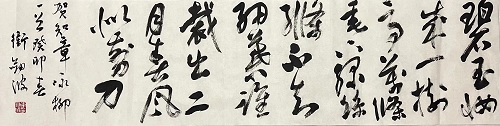 碧玉妝
成一樹
高萬條
垂下綠絲
絛不知
細葉誰
裁出二
月春風
似剪刀
賀知章咏柳
一首癸卯春